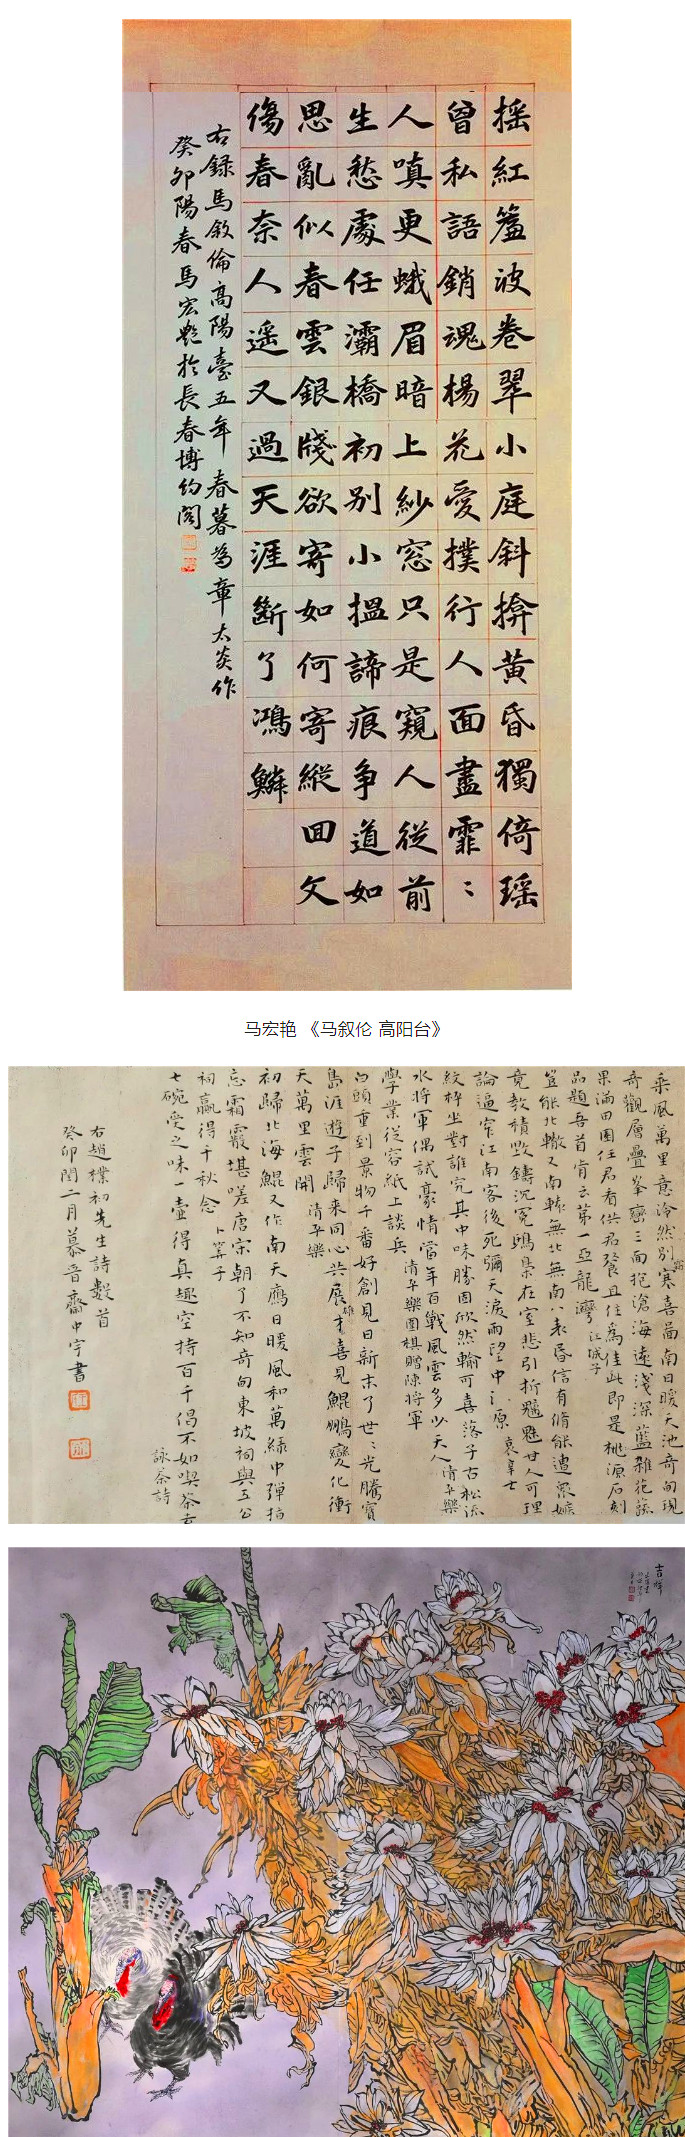 摇紅簾波卷翠小庭斜揜黄昏獨倚瑤
曾私語銷魂楊花愛撲行人面盡霏〻
人嗔更蛾眉暗上紗窓只是窺人從前
生愁處任灞橋初别小揾諦痕争道如
思亂似春雲銀牋欲寄如何寄縱囬文
傷春奈人遥又過天涯斷了鴻鱗
右録馬敘倫高陽臺五年春暮為章太炎作
癸卯陽春馬宏艷於長春博約閣
马宏艳 《马叙伦 高阳台》
乘風萬里意泠然别寒喜嵓南日暖天池奇甸現
奇觀層疊峯巒三面抱滄海遠淺深藍雜花蕊
果滿田園任君看供君餐且住為佳此即是桃源石刻
品題吾首肯云第一亞龍灣 江城子
豈能北轍又南轅無北無南八表昏信有脩能遭衆嫉
竟教積毁鑄沉冤鴟梟在室悲引折魑魅甘人可理
論逼窄江南客後死彌天淚雨望中原 哀辛士
紋枰坐對誰究其中味勝固欣然輸可喜落子古松流
水將軍偶試豪情當年百戰風雲多少天人 清平樂
學業從容紙上談兵 清平樂圍棋贈陳將軍
白頭重到景物千番好創見日新未了世〻光騰寶
島涯遊子歸来同心共展雄才喜見鯤鵬變化衝
天萬里雲開 清平樂
初歸北海鯤又作南天鷹日暖風和萬緑中彈指
忘霜霰堪嗟唐宋朝了不知奇甸東坡祠與五公
祠贏得千秋念 卜算子
七碗受之味一壺得真趣空持百千偈不如喫茶去
詠茶詩
右趙樸初先生詩數首
癸卯閏二月慕晋齋中宇書
吉祥